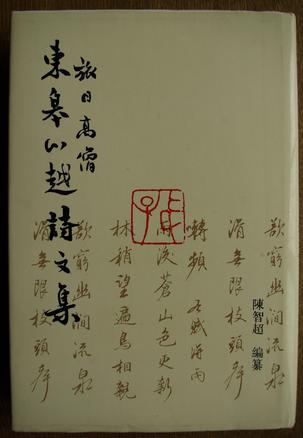 旅日高僧
東皋心越詩文集
陳智超 編纂
欲窮幽澗流泉
滑無限枝頭群
囀頻
蒼山色更新
林稍望遍鳥相親
欲窮幽澗流泉
滑無限枝頭群